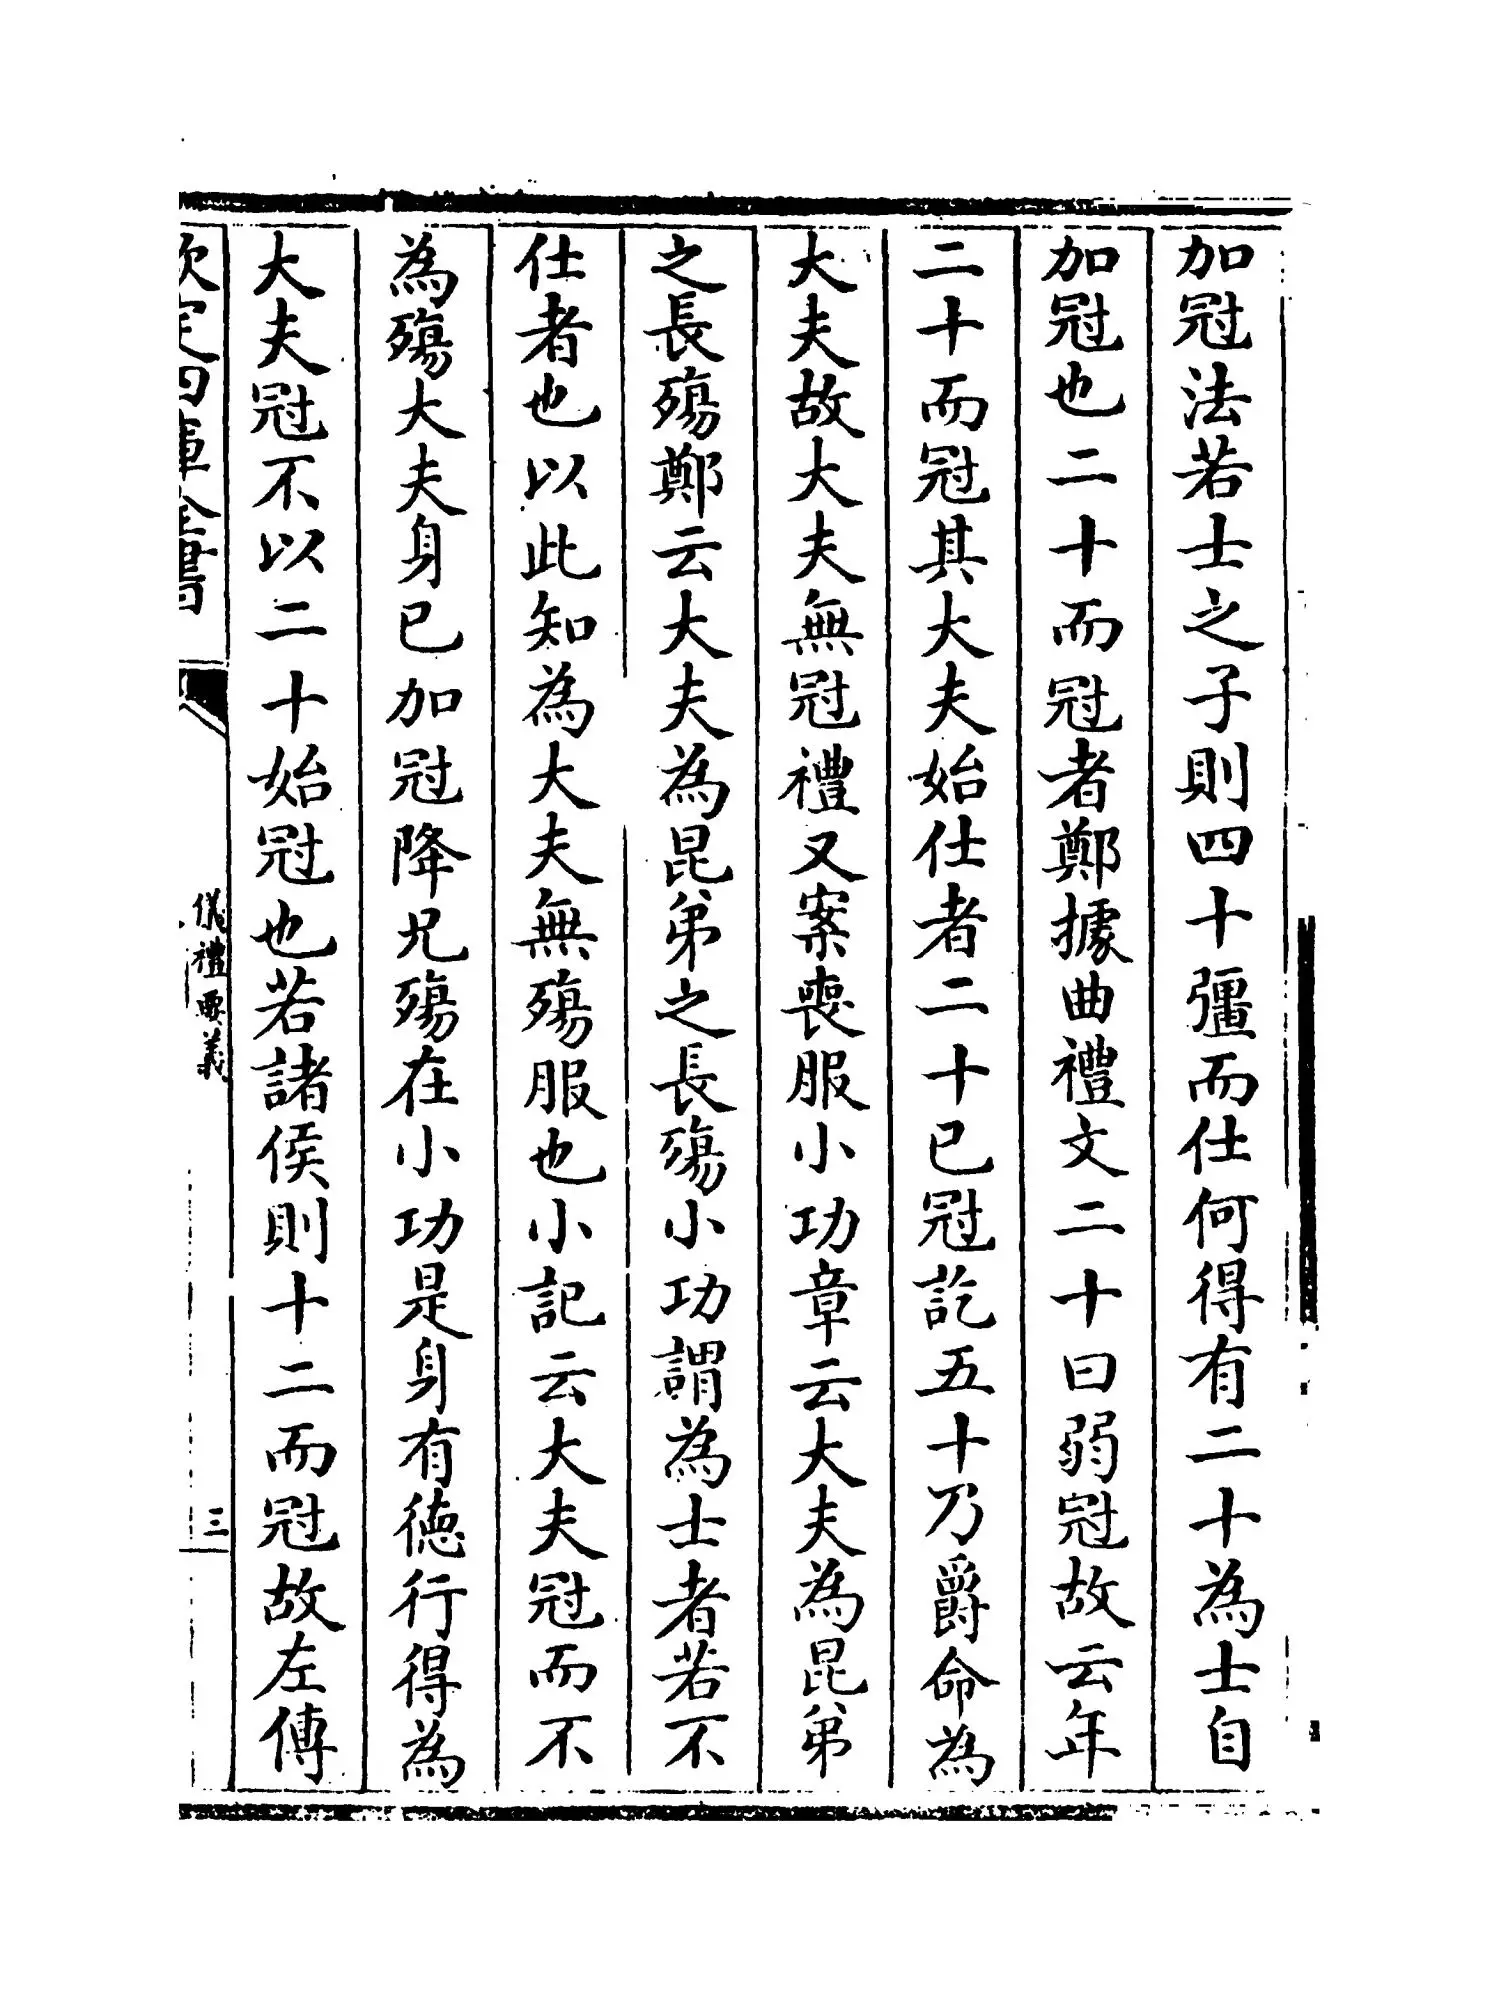 加冠法若士之子則四十彊而仕何得有二十為士自
加冠也二十而冠者鄭據曲禮文二十曰弱冠故云年
二十而冠其大夫始仕者二十已冠訖五十乃爵命為
大夫故大夫無冠禮又案喪服小功章云大夫為昆弟
之長殤鄭云大夫為昆弟之長殤小功謂為士者若不
仕者也以此知為大夫無殤服也小記云大夫冠而不
為殤大夫身已加冠降兄殤在小功是身有德行得為
大夫冠不以二十始冠也若諸侯則十二而冠故左傳
欽定四庫全書
儀禮要義
三